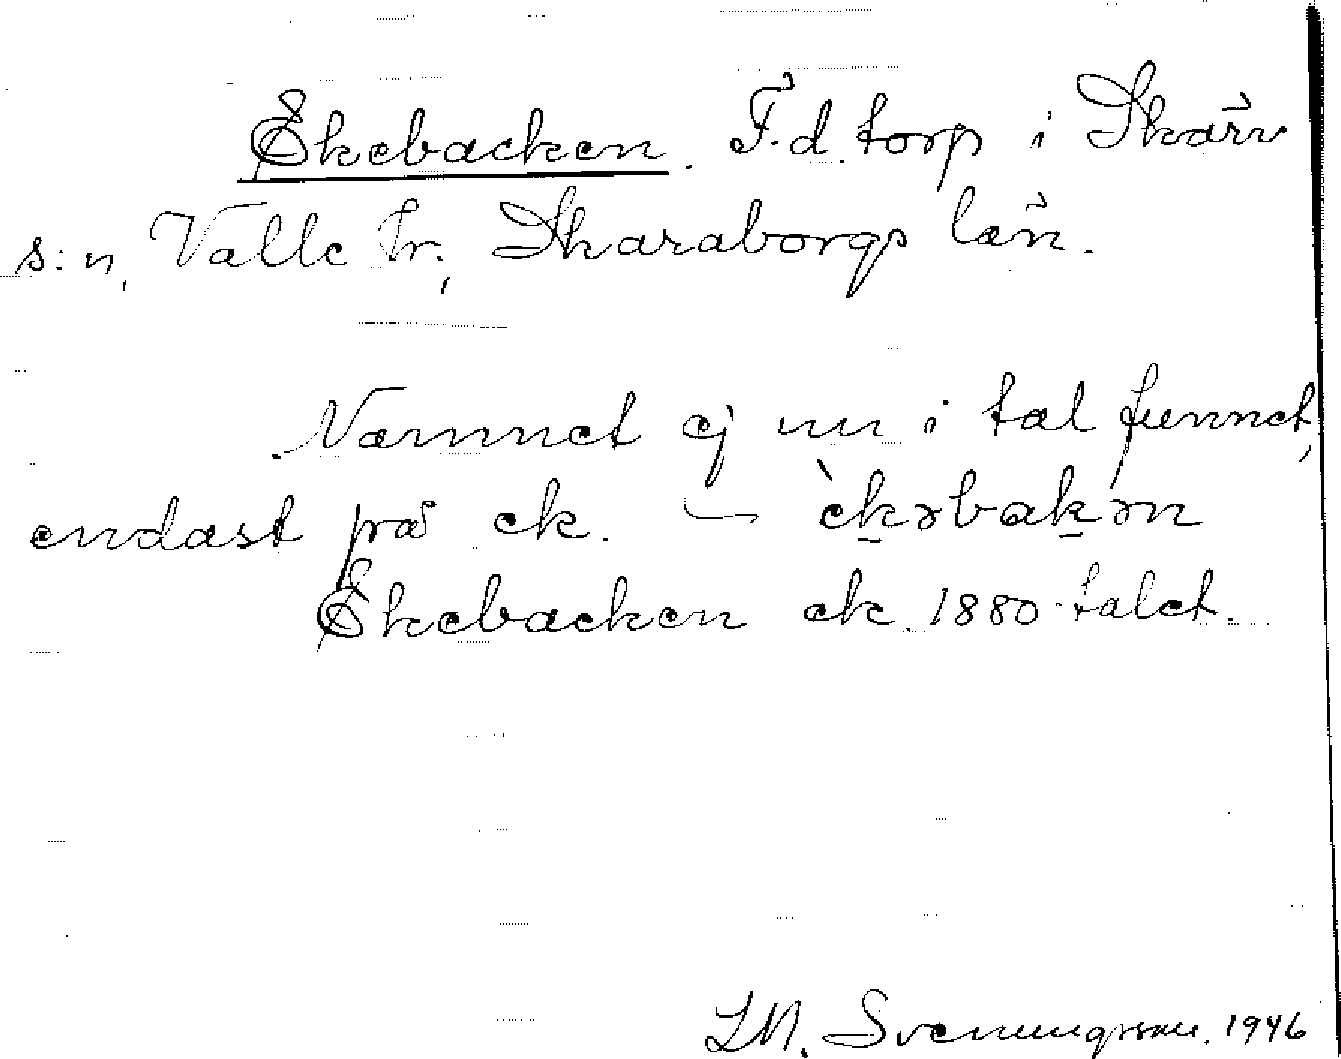 Ekebacken. F.d. torp i Skärv
s:n, Valle hr., Skaraborgs län.
Namnet ej nu i tal funnet,
endast på ek. — èk̠əbak̠ən
Ekebacken ek. 1880-talet.
LM. Svenungsson. 1946